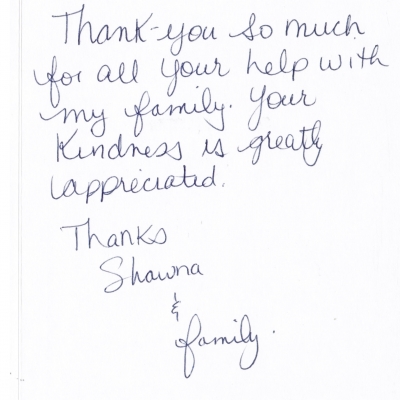 Thank-you so much
for all your help with
my family. Your
Kindness is greatly
appreciated.
Thanks
Shawna
&
family.